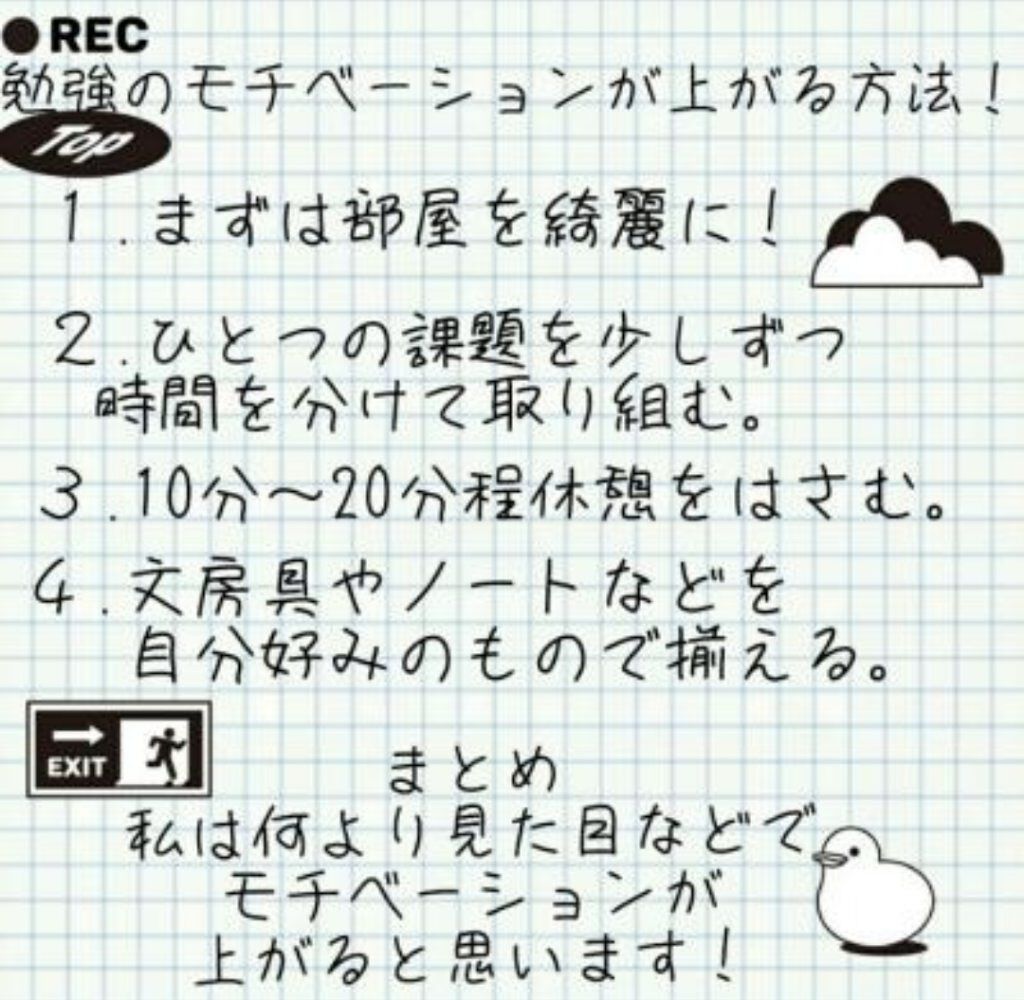 ● REC
勉強のモチベーションが上がる方法！
Top
1．まずは部屋を綺麗に！
2．ひとつの課題を少しずつ
時間を分けて取り組む。
3．10分～20分程休憩をはさむ。
4．文房具やノートなどを
自分好みのもので揃える。
EXIT
まとめ
私は何より見た目などで
モチベーションが
上がると思います！